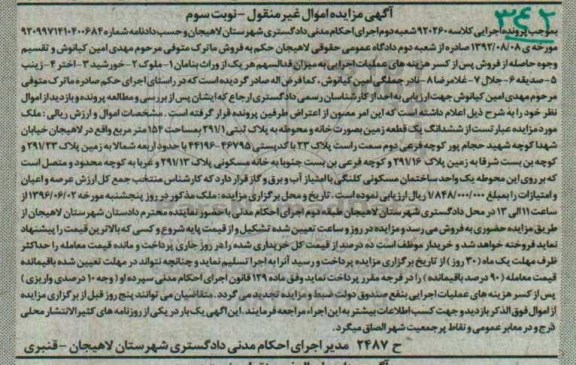 ۳۴۲
آگهی مزایده اموال غیر منقول - نوبت سوم
بموجب پرونده اجرایی کلاسه ۹۲۰۲۶۰ شعبه دوم اجرای احکام مدنی دادگستری شهرستان لاهیجان و حسب دادنامه شماره ۹۲۰۹۹۷۱۴۱۰۴۰۰۶۸۴
مورخه ی ۱۳۹۲/۰۸/۰۸ صادره از شعبه دوم دادگاه عمومی حقوقی لاهیجان حکم به فروش ماترک متوفی مرحوم مهدی امین کیانوش و تقسیم
وجوه حاصله از فروش پس از کسر هزینه های عملیات اجرایی به میزان قدالسهم هر یک از وراث بنامان ۱- ملوک ۲- خورشید ۳- اختر ۴- زینب
۵- صدیقه ۶- جلال ۷- غلامرضا ۸- نادر جملگی امین کیانوش، کما فرض اله صادر گردیده است که در راستای اجرای حکم صادره ماترک متوفی
مرحوم مهدی امین کیانوش جهت ارزیابی به احد از کارشناسان رسمی دادگستری ارجاع که ایشان پس از بررسی و مطالعه پرونده و بازدید از اموال
نظر خود را به شرح ذیل اعلام داشته است که این امر مصون از اعتراض طرفین پرونده قرار گرفته است. مشخصات اموال و ارزش ریالی: ملک
مورد مزایده عبارتست از ششدانگ یک قطعه زمین بصورت خانه و محوطه به پلاک ثبتی ۲۹۱/۱ بمساحت ۱۵۴ متر مربع واقع در لاهیجان خیابان
شهدا کوچه شهید حجام پور کوچه فرعی دوم سمت راست پلاک ۲۳ با کدپستی ۴۶۷۹۵-۴۴۱۹۶ با حدود اربعه شمالا به زمین پلاک ۲۹۱/۲۳ و
کوچه بن بست شرقا به زمین پلاک ۲۹۱/۱۶ و کوچه فرعی بن بست جنوبا به خانه مسکونی پلاک ۲۹۱/۱۳ و غربا به کوچه محدود و متصل است
که بر روی این محوطه یک واحد ساختمان مسکونی کلنگی با امتیاز آب و برق و گاز قرار دارد که کارشناس منتخب جمع کل ارزش عرصه و اعیان
و امتیازات را بمبلغ ۱/۸۴۸/۰۰۰/۰۰۰ ریال ارزیابی نموده است. تاریخ و محل برگزاری مزایده: ملک مذکور در روز پنجشنبه مورخه ۱۳۹۶/۰۶/۰۲ از
ساعت ۱۱ الی ۱۲ در محل دادگستری شهرستان لاهیجان طبقه دوم اجرای احکام مدنی با حضور نماینده محترم دادستان شهرستان لاهیجان از
طریق مزایده حضوری به فروش می رسد و مزایده در روز و ساعت تعیین شده تشکیل و از قیمت پایه شروع و کسی که بالاترین قیمت را پیشنهاد
نماید فروخته خواهد شد و خریدار موظف است ده درصد از قیمت کل خریداری شده را در روز جاری پرداخت و مانده قیمت معامله را حداکثر
ظرف مهلت یک ماه (۳۰ روز) از تاریخ برگزاری مزایده پرداخت و رسید آنرا به اجرا تسلیم نماید و چنانچه نتواند در مهلت تعیین شده باقیمانده
قیمت معامله (۹۰ درصد باقیمانده) را در فرجه مقرر پرداخت نماید وفق ماده ۱۲۹ قانون اجرای احکام مدنی سپرده او (وجه ۱۰ درصدی واریزی)
پس از کسر هزینه های عملیات اجرایی بنفع صندوق دولت ضبط و مزایده تجدید می گردد. متقاضیان می توانند پنج روز قبل از برگزاری مزایده
از اموال فوق الذکر بازدید و جهت کسب اطلاعات بیشتر به این اجراء مراجعه فرمایند. این آگهی یک بار در یکی از روزنامه های کثیرالانتشار محلی
درج و در معابر عمومی و نقاط پر جمعیت شهر الصاق میگردد.
ح ۲۴۸۷ مدیر اجرای احکام مدنی دادگستری شهرستان لاهیجان - قنبری